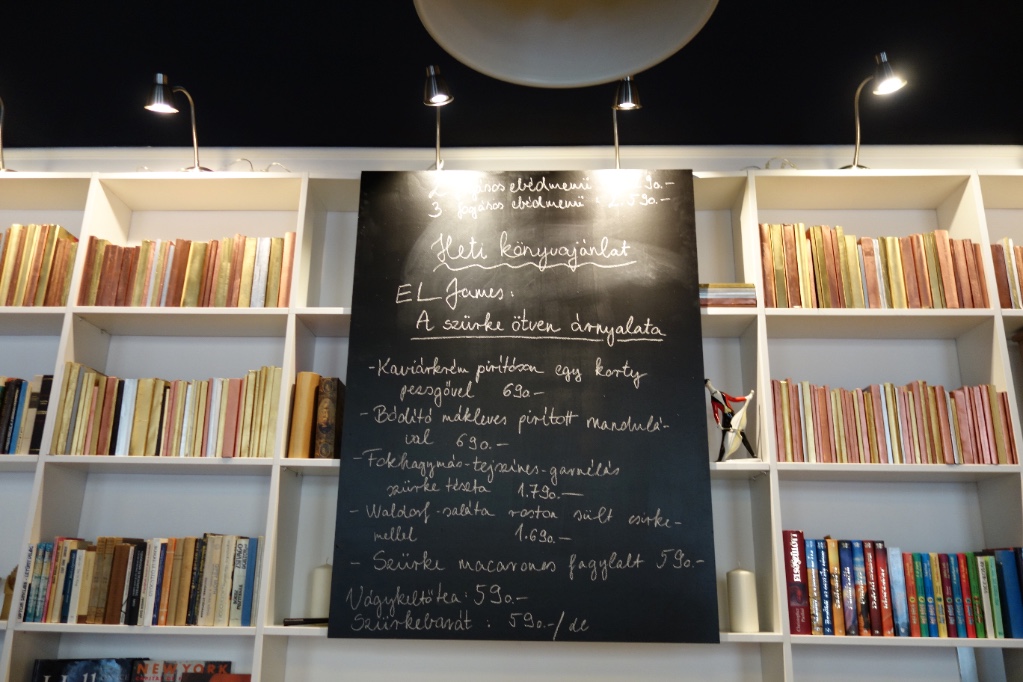 ebédmenü
3 fogásos ebédmenü
Heti könyvajánlat
EL James:
A szürke ötven árnyalata
-Kaviárkrém pirítóson egy korty
pezsgővel 690.-
- Bódító mákleves pirított mandulá-
val 690.-
-Fokhagymás-tejszínes-garnélás
szürke tészta 1.790.-
- Waldorf-saláta roston sült csirke-
mellel 1.690.-
- Szürke macaronos fagylalt 590.-
Vágykeltőtea: 590.-
Szürkebarát: 590.-/dc
NEW YORK